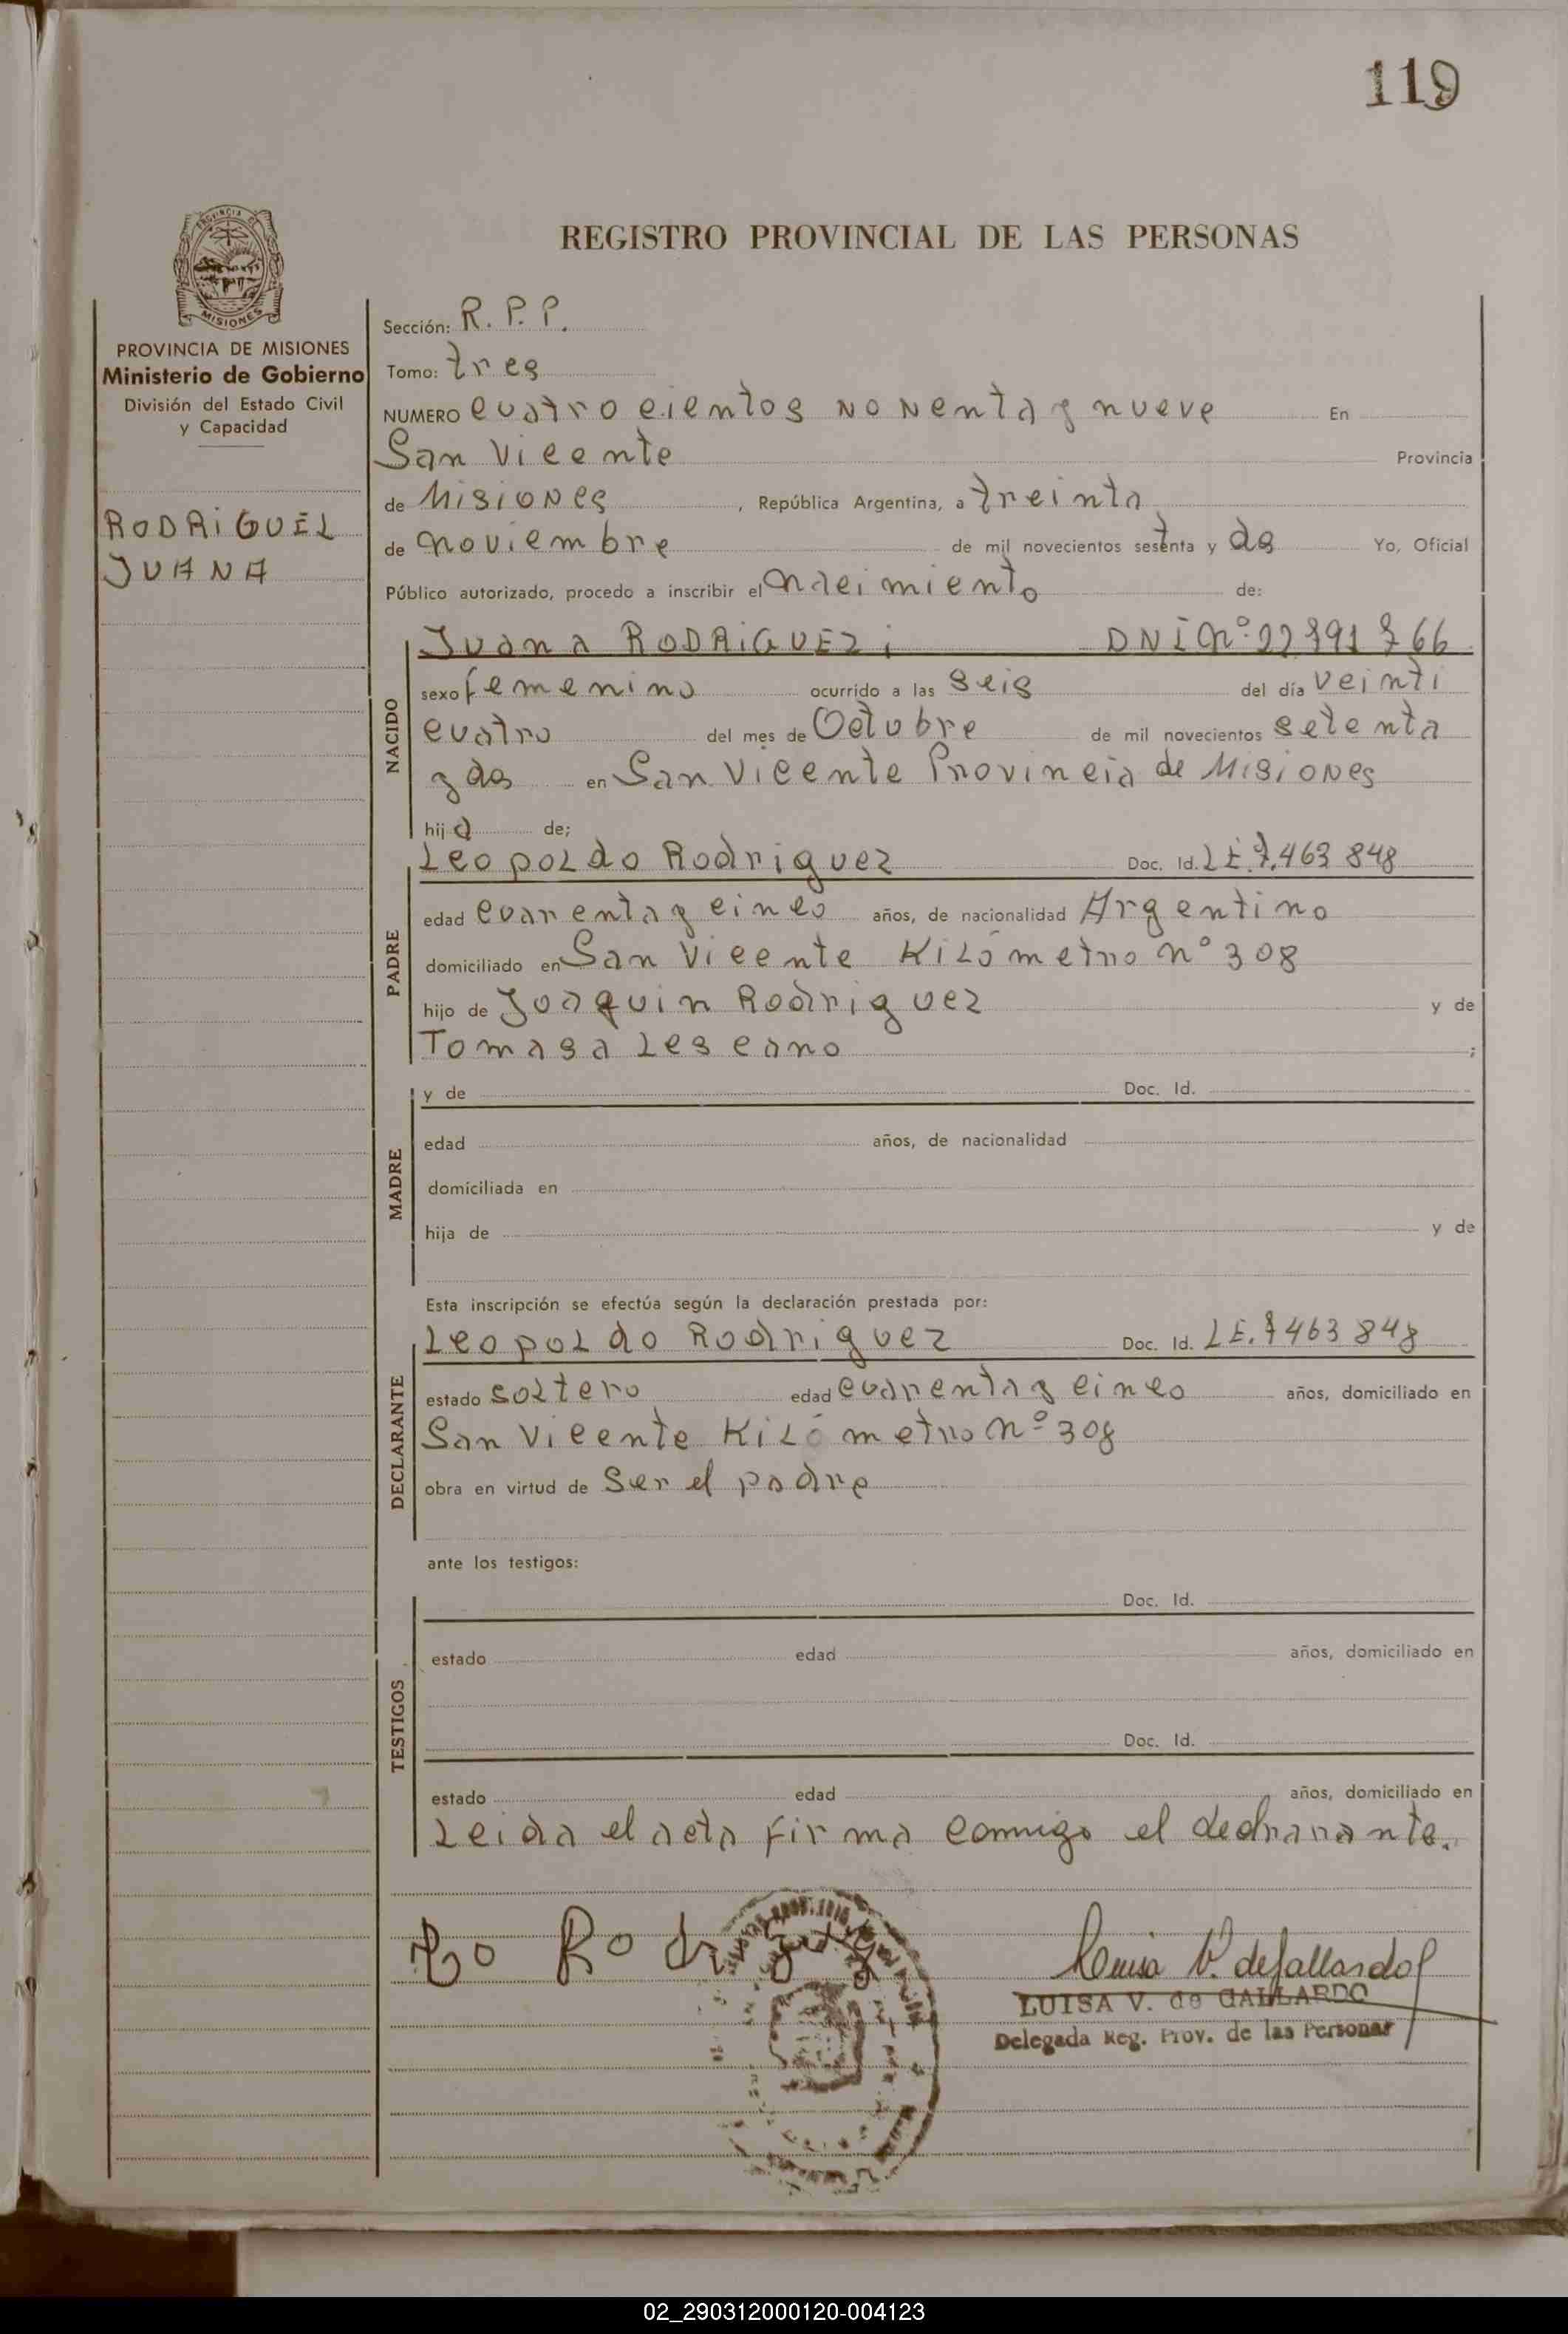 119
PROVINCIA DE
MISIONES
REGISTRO PROVINCIAL DE LAS PERSONAS
PROVINCIA DE MISIONES
Ministerio de Gobierno
División del Estado Civil
y Capacidad
RODRIGUEZ
JUANA
Sección: R. P. P.
Tomo: tres
NUMERO cuatrocientos noventa y nueve En
San Vicente Provincia
de Misiones, República Argentina, a treinta
de noviembre de mil novecientos setenta y dos Yo, Oficial
Público autorizado, procedo a inscribir el nacimiento de:
NACIDO
Juana RODRIGUEZ; DNI Nº
sexo femenino ocurrido a las seis del día veinti
cuatro del mes de Octubre de mil novecientos setenta
y dos en San Vicente Provincia de Misiones
hija de;
PADRE
Leopoldo Rodriguez Doc. Id. L E. 7.463 848
edad cuarenta y cinco años, de nacionalidad Argentino
domiciliado en San Vicente Kilómetro nº 308
hijo de Joaquin Rodriguez y de
Tomasa Lescano ;
MADRE
y de Doc. Id.
edad años, de nacionalidad
domiciliada en
hija de y de
Esta inscripción se efectúa según la declaración prestada por:
DECLARANTE
Leopoldo Rodriguez Doc. Id. L E. 7463 848
estado soltero edad cuarenta y cinco años, domiciliado en
San Vicente Kilómetro nº 308
obra en virtud de ser el padre
ante los testigos:
TESTIGOS
Doc. Id.
estado edad años, domiciliado en
Doc. Id.
estado edad años, domiciliado en
Leida el acta firma conmigo el declarante.
Luisa V. de Gallardo
LUISA V. de GALLARDO
Delegada Reg. Prov. de las Personas
02_290312000120-004123